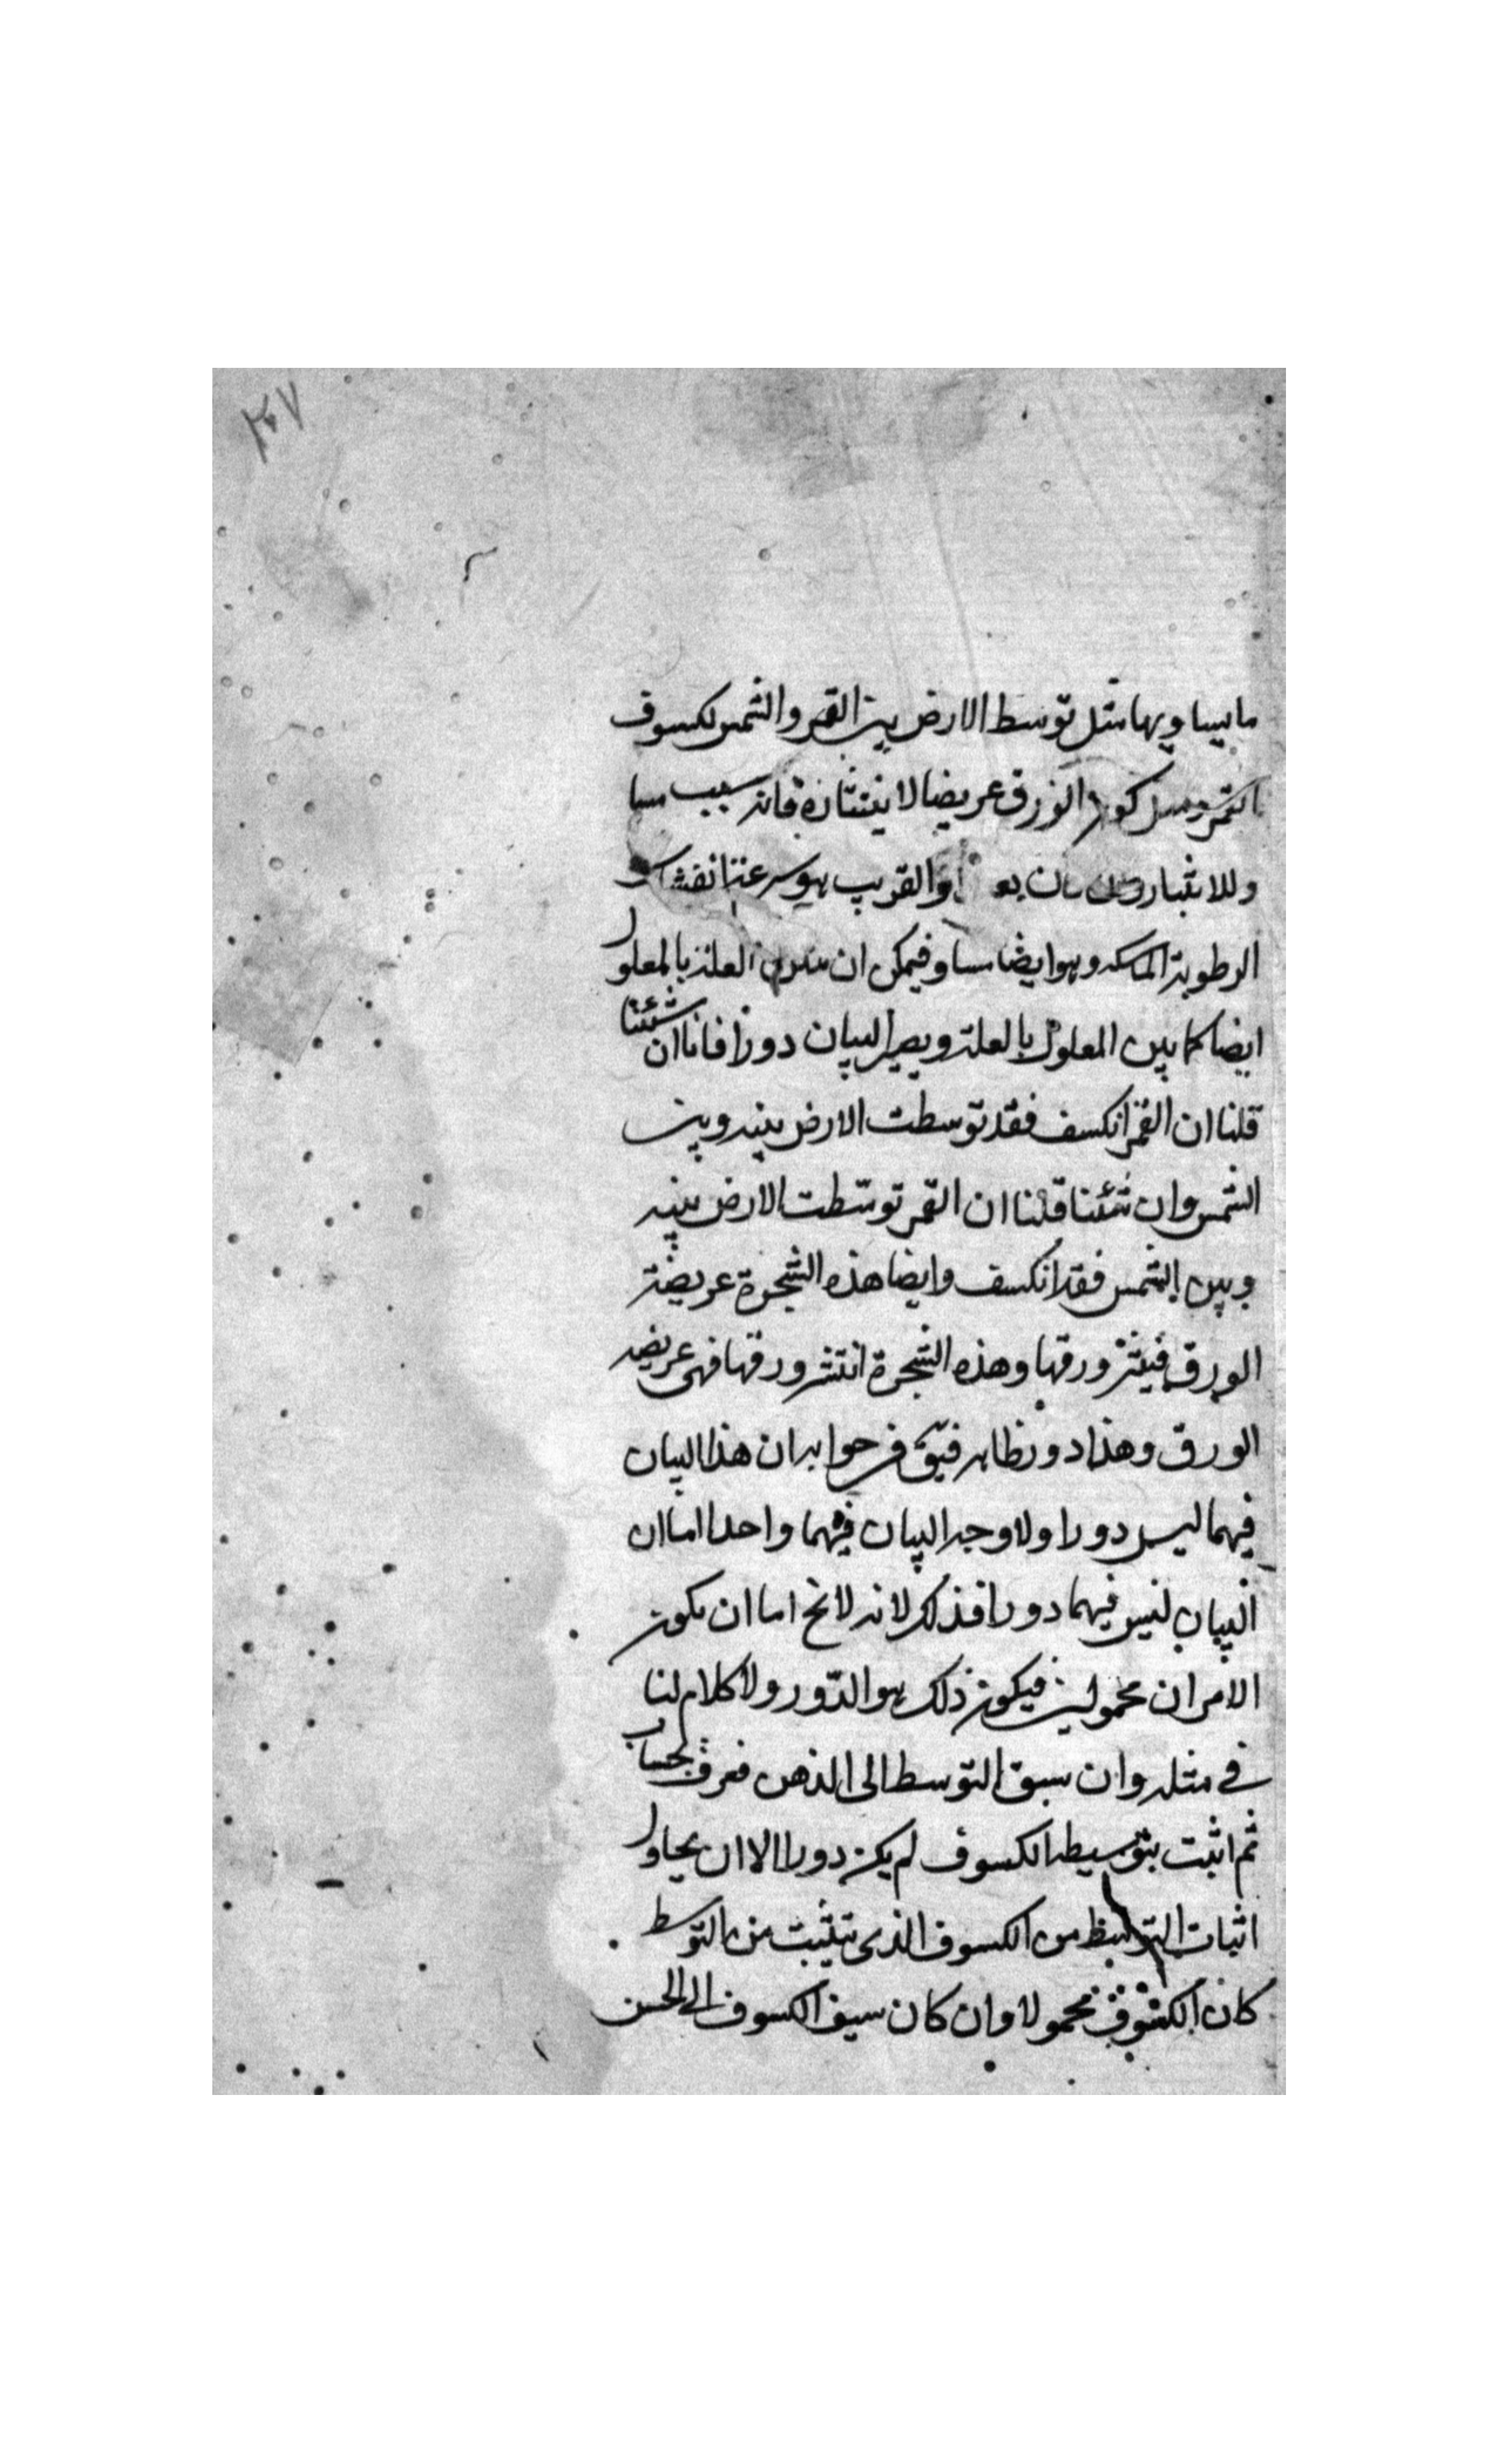 ٢٠٧
ما يساويها مثل توسط الارض بين القمر والشمس لكسوف
القمر ومثل كون الورق عريضا لانتشاره فانه سبب مسا
وللانتثار والقريب هو سرعة انفشاش
الرطوبة الماسكه وهو ايضا مساو فيمكن ان العلة بالمعلول
ايضا كما بين المعلول بالعلة ويصير البيان دورا فانا ان شئنا
قلنا ان القمر انكسف فقد توسطت الارض بينه وبين
الشمس وان شئنا قلنا ان القمر توسّطت الارض بينه
وبين الشمس فقد انكسف وايضا هذه الشجرة عريضة
الورق فينتثر ورقها وهذه الشجرة انتثر ورقها فهى عريضه
الورق وهذا دور ظاهر فيق فى جوابه ان هذا البيان
فيهما ليس دورا ولا وجه البيان فيهما واحدا اما ان
البيان ليس فيهما دورا فذلك لانه لا يخ اما ان يكون
الامران مجهولين فيكون ذلك هو الدّور ولا كلام لنا
فى مثله وان سبق التوسط الى الذهن فعرف بحساب
ثم اثبت بتوسيطه الكسوف لم يكن دورا الا ان يحاول
اثبات التوسط من الكسوف الذى يثبت من التوسط
كان الكسوف مجهولا وان كان سبق الكسوف الى الحس